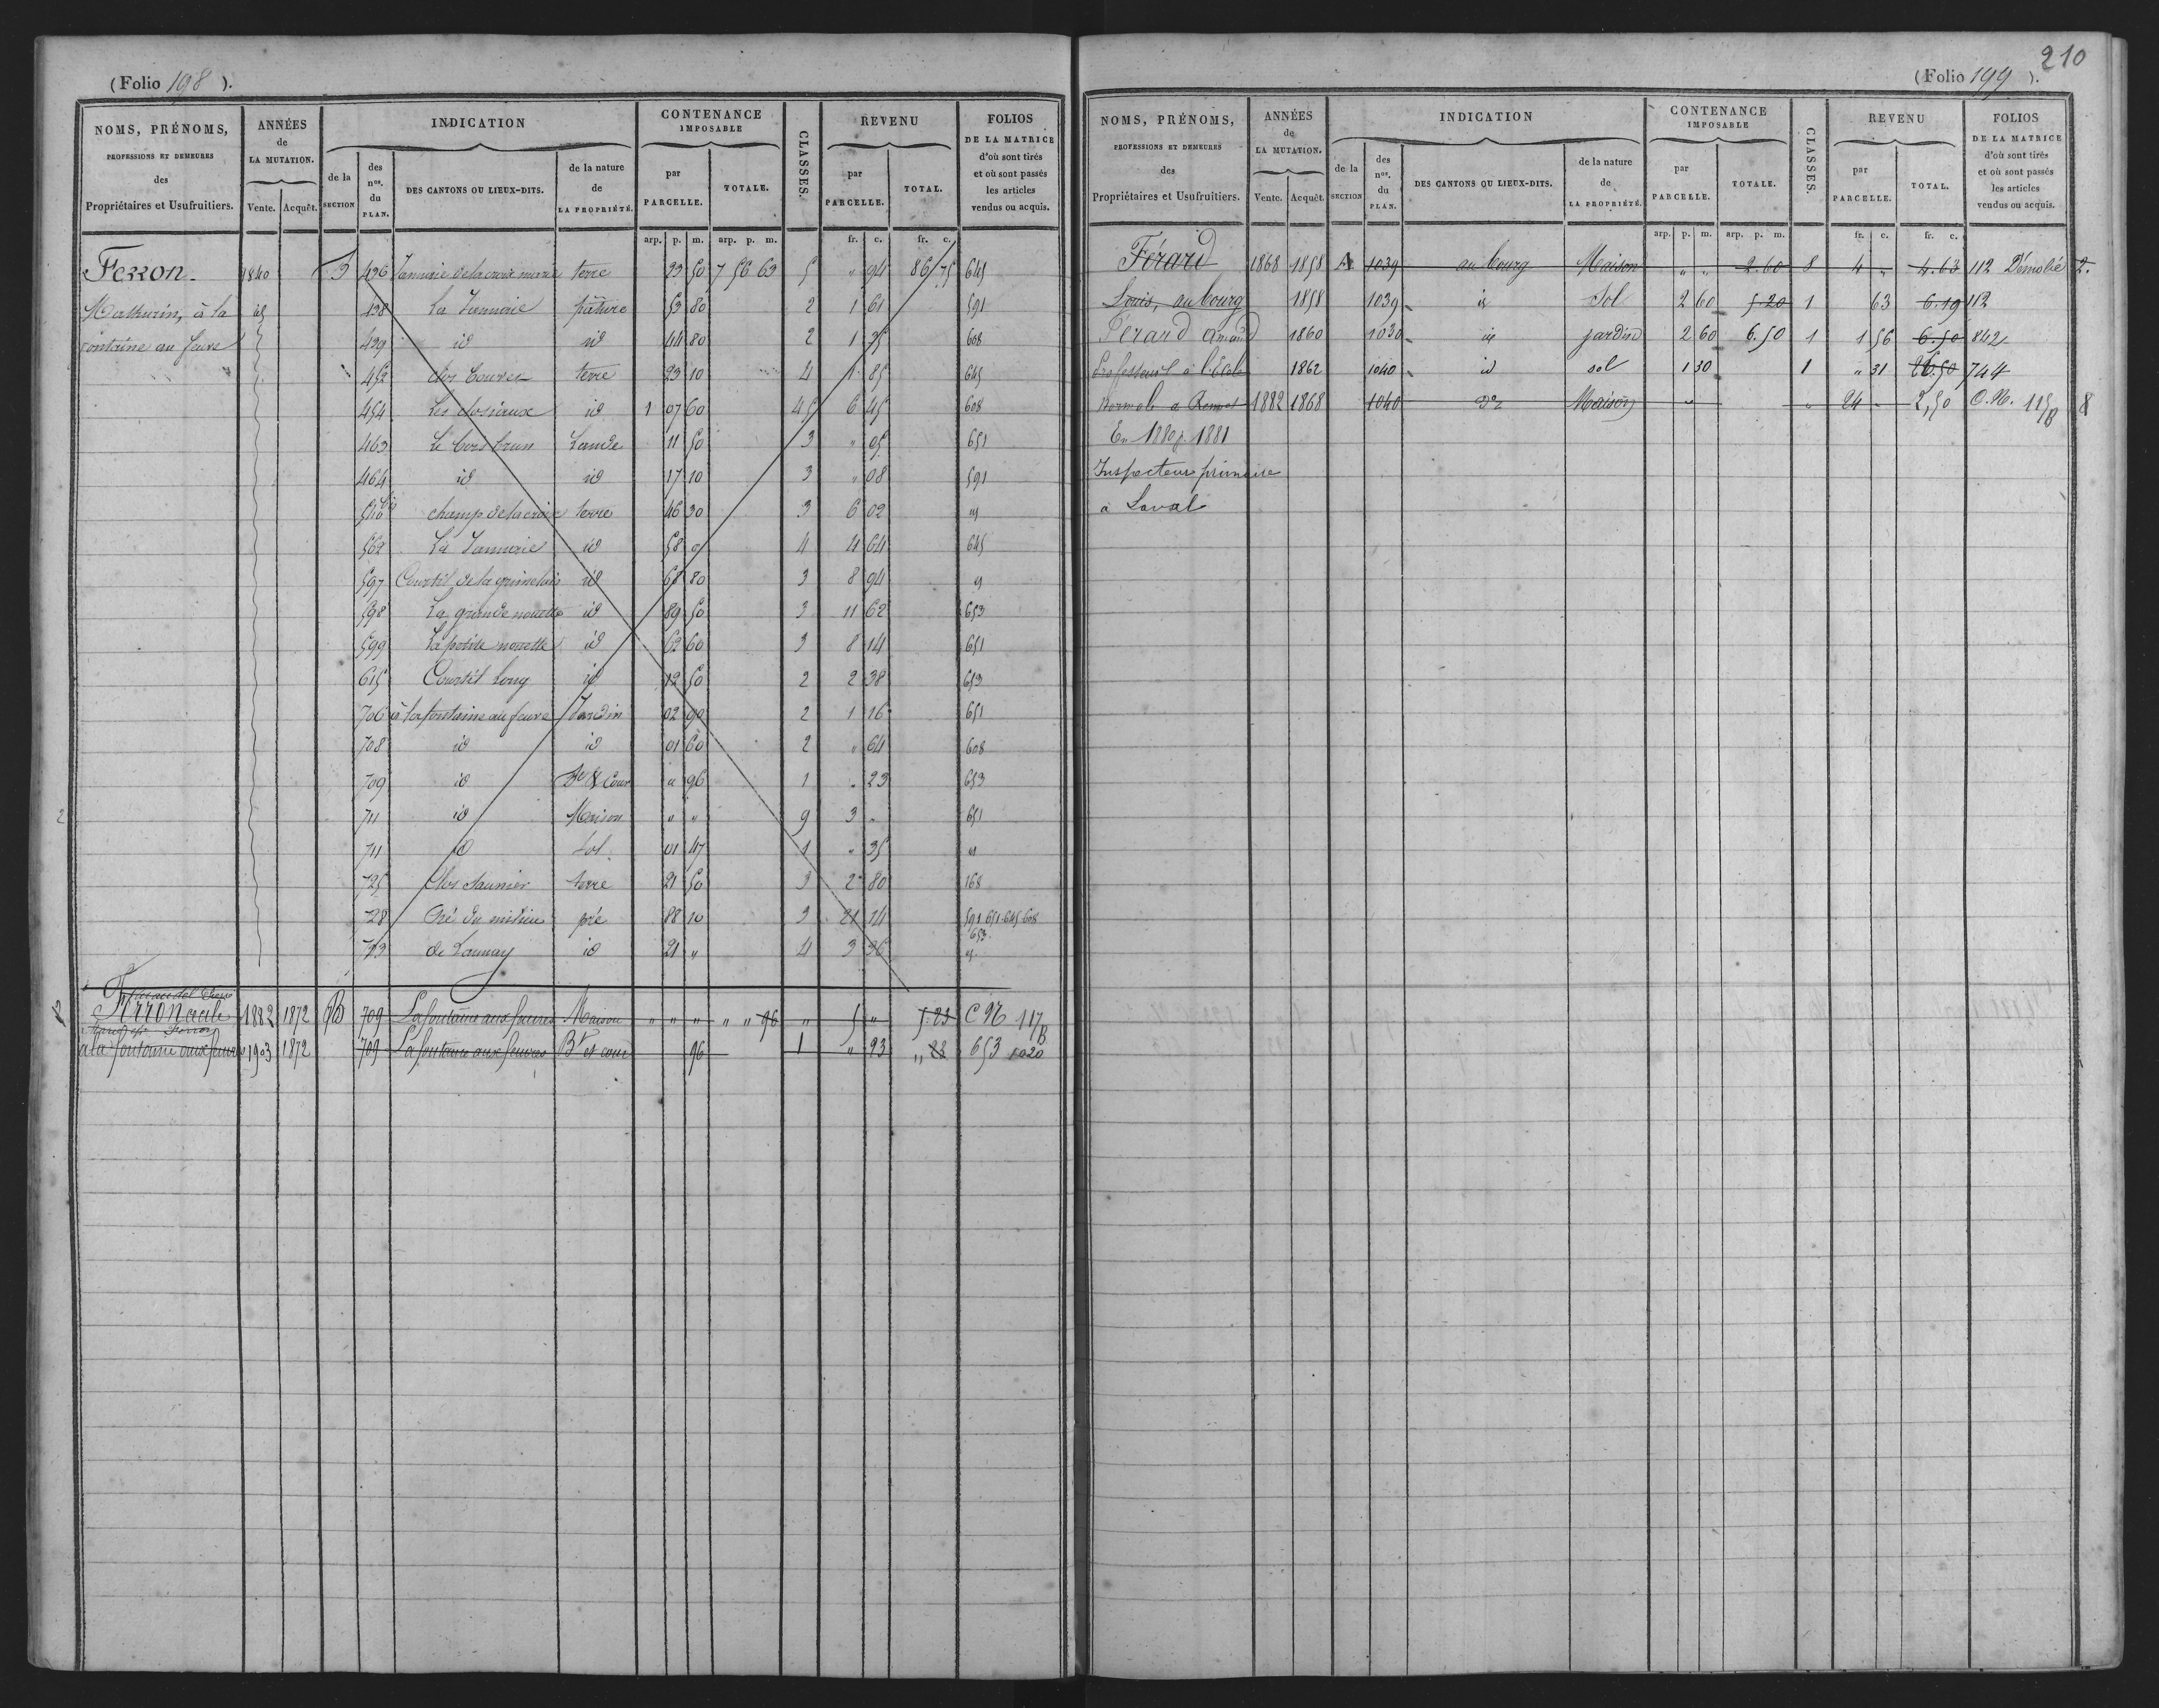 (Folio 198 ).
NOMS, PRÉNOMS, PROFESSIONS ET DEMEURES des Propriétaires et Usufruitiers. ANNÉES de LA MUTATION. Vente. Acquêt. INDICATION de la SECTION des nos. du PLAN. DES CANTONS OU LIEUX-DITS. de la nature de LA PROPRIÉTÉ. CONTENANCE IMPOSABLE par PARCELLE. TOTALE. CLASSES. REVENU par PARCELLE. TOTAL. FOLIOS DE LA MATRICE d'où sont tirés et où sont passés les articles vendus ou acquis.
arp. p. m. arp. p. m. fr. c. fr. c.
Ferron 1840 436 terre 23 50 7 56 63 5 " 94 86 75 645
Mathurin, à la id 438 La Jannaie pâture 53 80 2 1 61 591
fontaine au feuve 439 id id 44 80 2 1 35 608
452 terre 23 10 4 1 85 645
454 Les closiaux id 1 07 60 45 6 45 608
463 Le bois brun Lande 11 50 3 " 05 651
464 id id 17 10 3 " 08 591
510 bis champ de la croix terre 46 30 3 6 02 "
562 La Jannaie id 58 " 4 4 64 645
597 Courtil de la id 68 80 3 8 94 "
598 La grande nouette id 89 50 3 11 62 653
599 La petite nouette id 62 60 3 8 14 651
615 Courtil Long id 12 50 2 2 38 653
706 à la fontaine au feuve Jardin 02 90 2 1 16 651
708 id id 01 60 2 " 64 608
709 id Bt & Cour " 96 1 " 23 653
2 711 id Maison " " 9 3 " 651
711 id Sol 01 47 1 " 35 "
725 Clos Saunier terre 21 50 3 2 80 168
728 Pré du milieu pré 88 10 3 21 14 591.651.645.608
653.
743 de Launay id 21 " 4 3 36 "
Ferron 1882 1872 B 709 La fontaine aux feuves Maison " " " " " 96 " 5 " 5.23 C N 117
à la fontaine aux feuves 1903 1872 709 La fontaine aux feuves Bt et cour 96 1 " 23 653 1020
210
(Folio 199 ).
NOMS, PRÉNOMS, PROFESSIONS ET DEMEURES des Propriétaires et Usufruitiers. ANNÉES de LA MUTATION. Vente. Acquêt. INDICATION de la SECTION des nos. du PLAN. DES CANTONS OU LIEUX-DITS. de la nature de LA PROPRIÉTÉ. CONTENANCE IMPOSABLE par PARCELLE. TOTALE. CLASSES. REVENU par PARCELLE. TOTAL. FOLIOS DE LA MATRICE d'où sont tirés et où sont passés les articles vendus ou acquis.
arp. p. m. arp. p. m. fr. c. fr. c.
Férard 1868 1858 A 1039 au bourg Maison " " 2.60 8 4 " 4.63 112 Démolie 2.
Louis, au bourg 1858 1039 id Sol 2 60 5.20 1 63 6.19 112
Férard Amand 1860 1030 id jardin 2 60 6.50 1 1 56 6.50 842
Professeur à l'Ecole 1862 1040 id sol 1 30 1 " 31 26.50 744
normale a Rennes 1882 1868 1040 Maison " " 24 " 2,50 C.N. 115 8
En 1880 p. 1881
Inspecteur primaire
à Laval